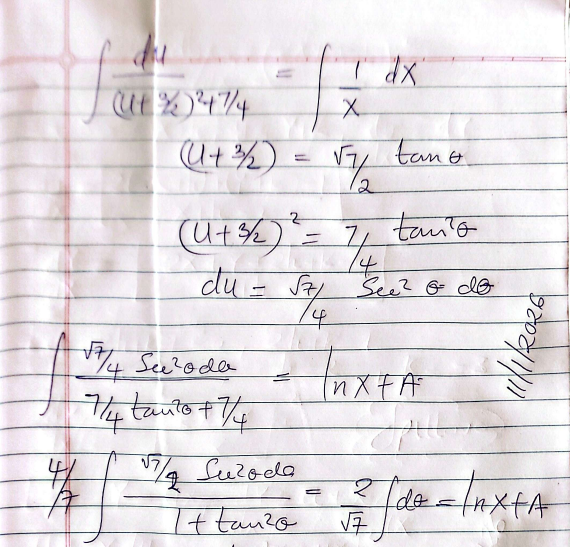 ∫ du/((u+3/2)²+7/4) = ∫ 1/x dx
(u+3/2) = √7/2 tanθ
(u+3/2)² = 7/4 tan²θ
du = √7/4 Sec²θ dθ
∫ (√7/4 Sec²θdθ)/(7/4 tan²θ+7/4) = lnx+A
11/1/2026
4/7 ∫ (√7/2 Sec²θdθ)/(1+tan²θ) = 2/√7 ∫dθ = lnx+A